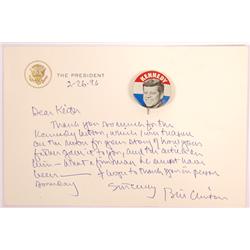 THE PRESIDENT
2-26-96
KENNEDY
Dear
Thank you so much for the
Kennedy button, which I will treasure
as the
father gave it to you, and the article on
him – what a fine man he must have
been — I hope to thank you in person
someday
Sincerely
Bill Clinton